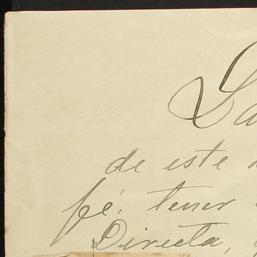 La
de este
fé, tener
Directa,